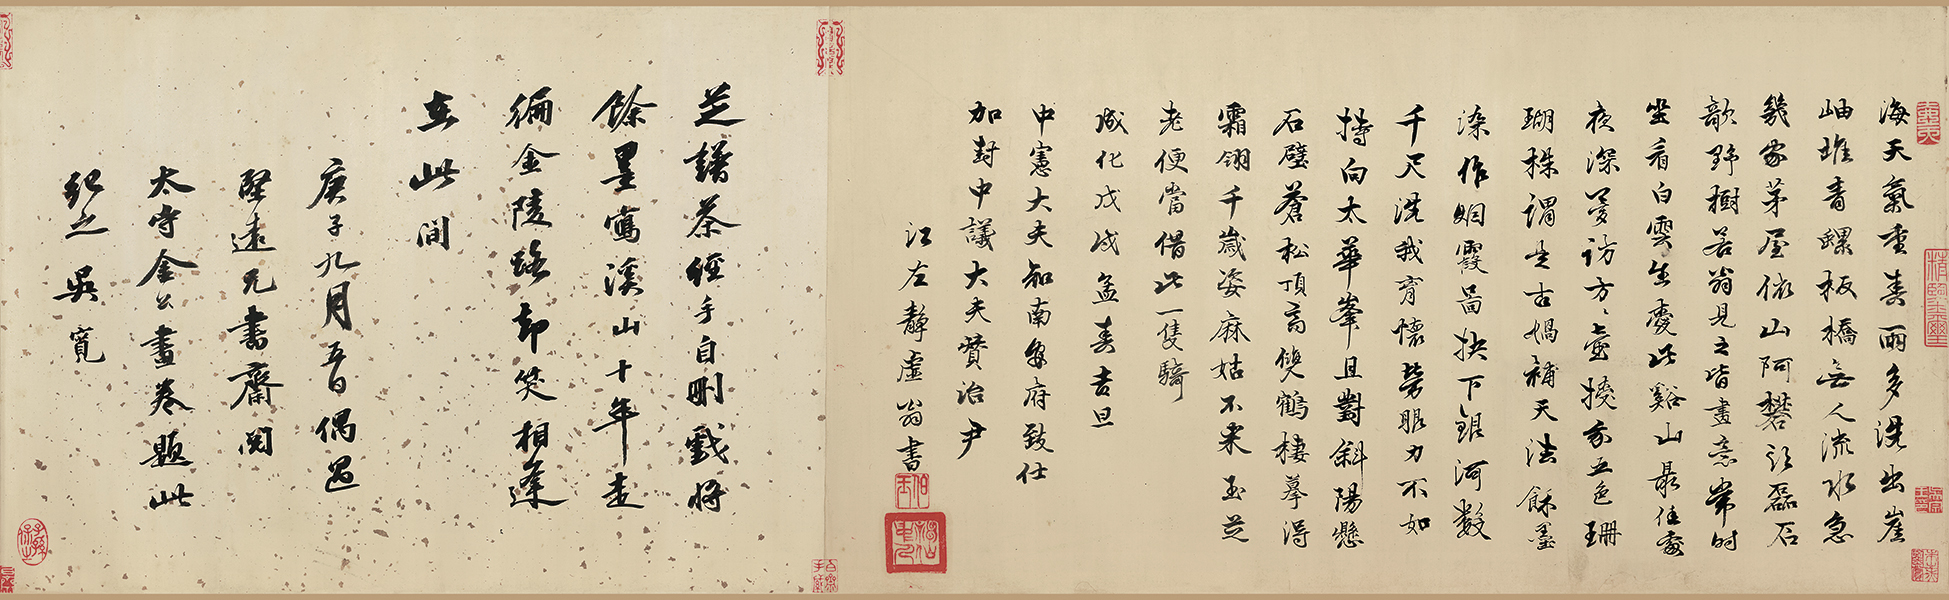 海天氣重春雨多洗出崖
岫堆青螺板橋無人流水急
幾家茅屋依山阿礬頭磊石
欹野樹若翁見之皆畫意常時
坐看白雲生愛此谿山最佳處
夜深夢訪方〻壺授我五色珊
瑚株謂是古媧補天法餘墨
染作烟霞圖抉下銀河數
千尺洗我胷懷勞眼力不如
持向太華峯且對斜陽懸
石壁蒼松頂高雙鶴棲摹得
霜翎千歲姿麻姑不來玉芝
老便當借此一隻騎
成化戊戌孟春吉旦
中憲大夫知南安府致仕
加封中議大夫贊治尹
江左靜虛翁書
芝譜茶經手自刪戲將
餘墨寫溪山十年走
徧金陵路却笑相逢
在此間
庚子九月五日偶過
堅遠兄書齋閱
太守金公畫卷題此
紀之 吳寬